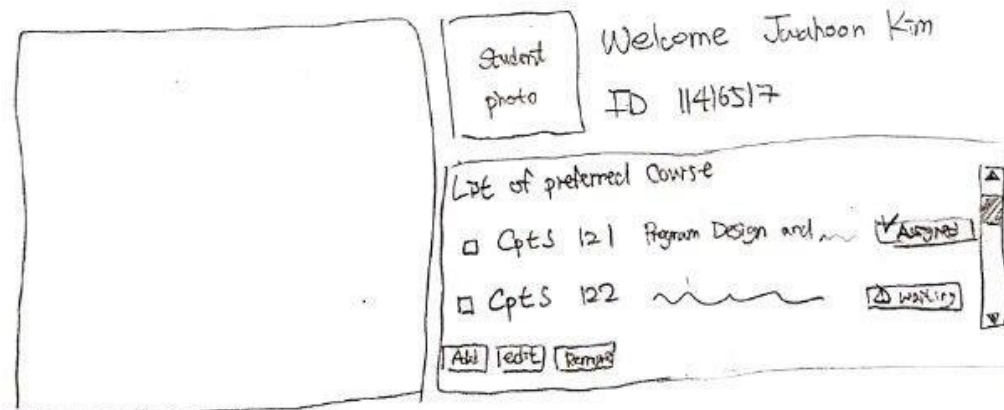 Student
photo
Welcome Jaahoon Kim
ID 11416517
List of preferred Course
CptS 121 Program Design and Assigned
CptS 122 Waiting
Add edit Remove